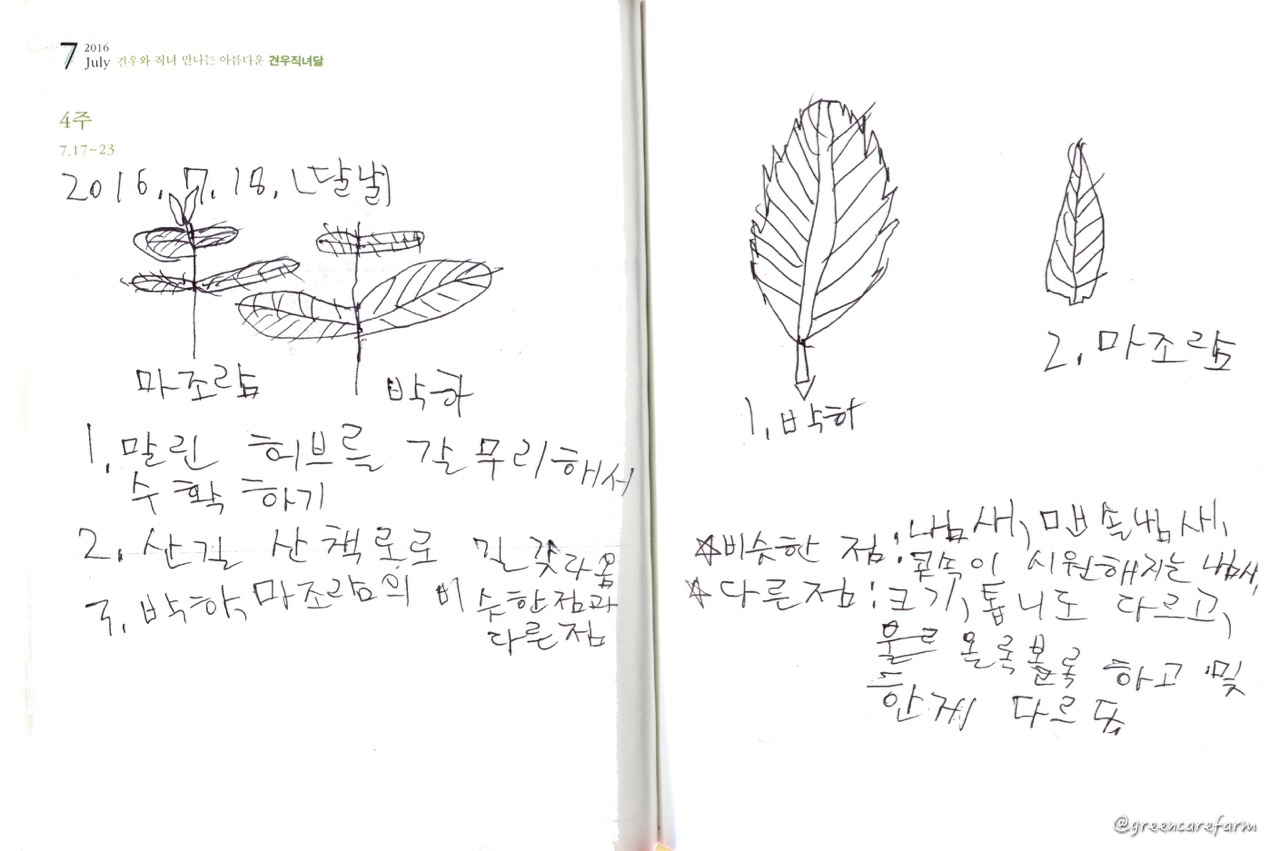 7
2016
July 견우와 직녀 만나는 아름다운 견우직녀달
4주
7.17~23
2016. 7. 18. (달날)
마조람
박하
1. 말린 허브를 갈무리해서
수확 하기
2. 산길 산책로로
3. 박하, 마조람의 비
슷한점과
다른점
1. 박하
2. 마조람
☆비슷한 점: 냄새,
콧속이 시원해지는
☆다른점: 크기, 톱니도 다르고,
올록볼록 하고
다르다.
@greencarefarm